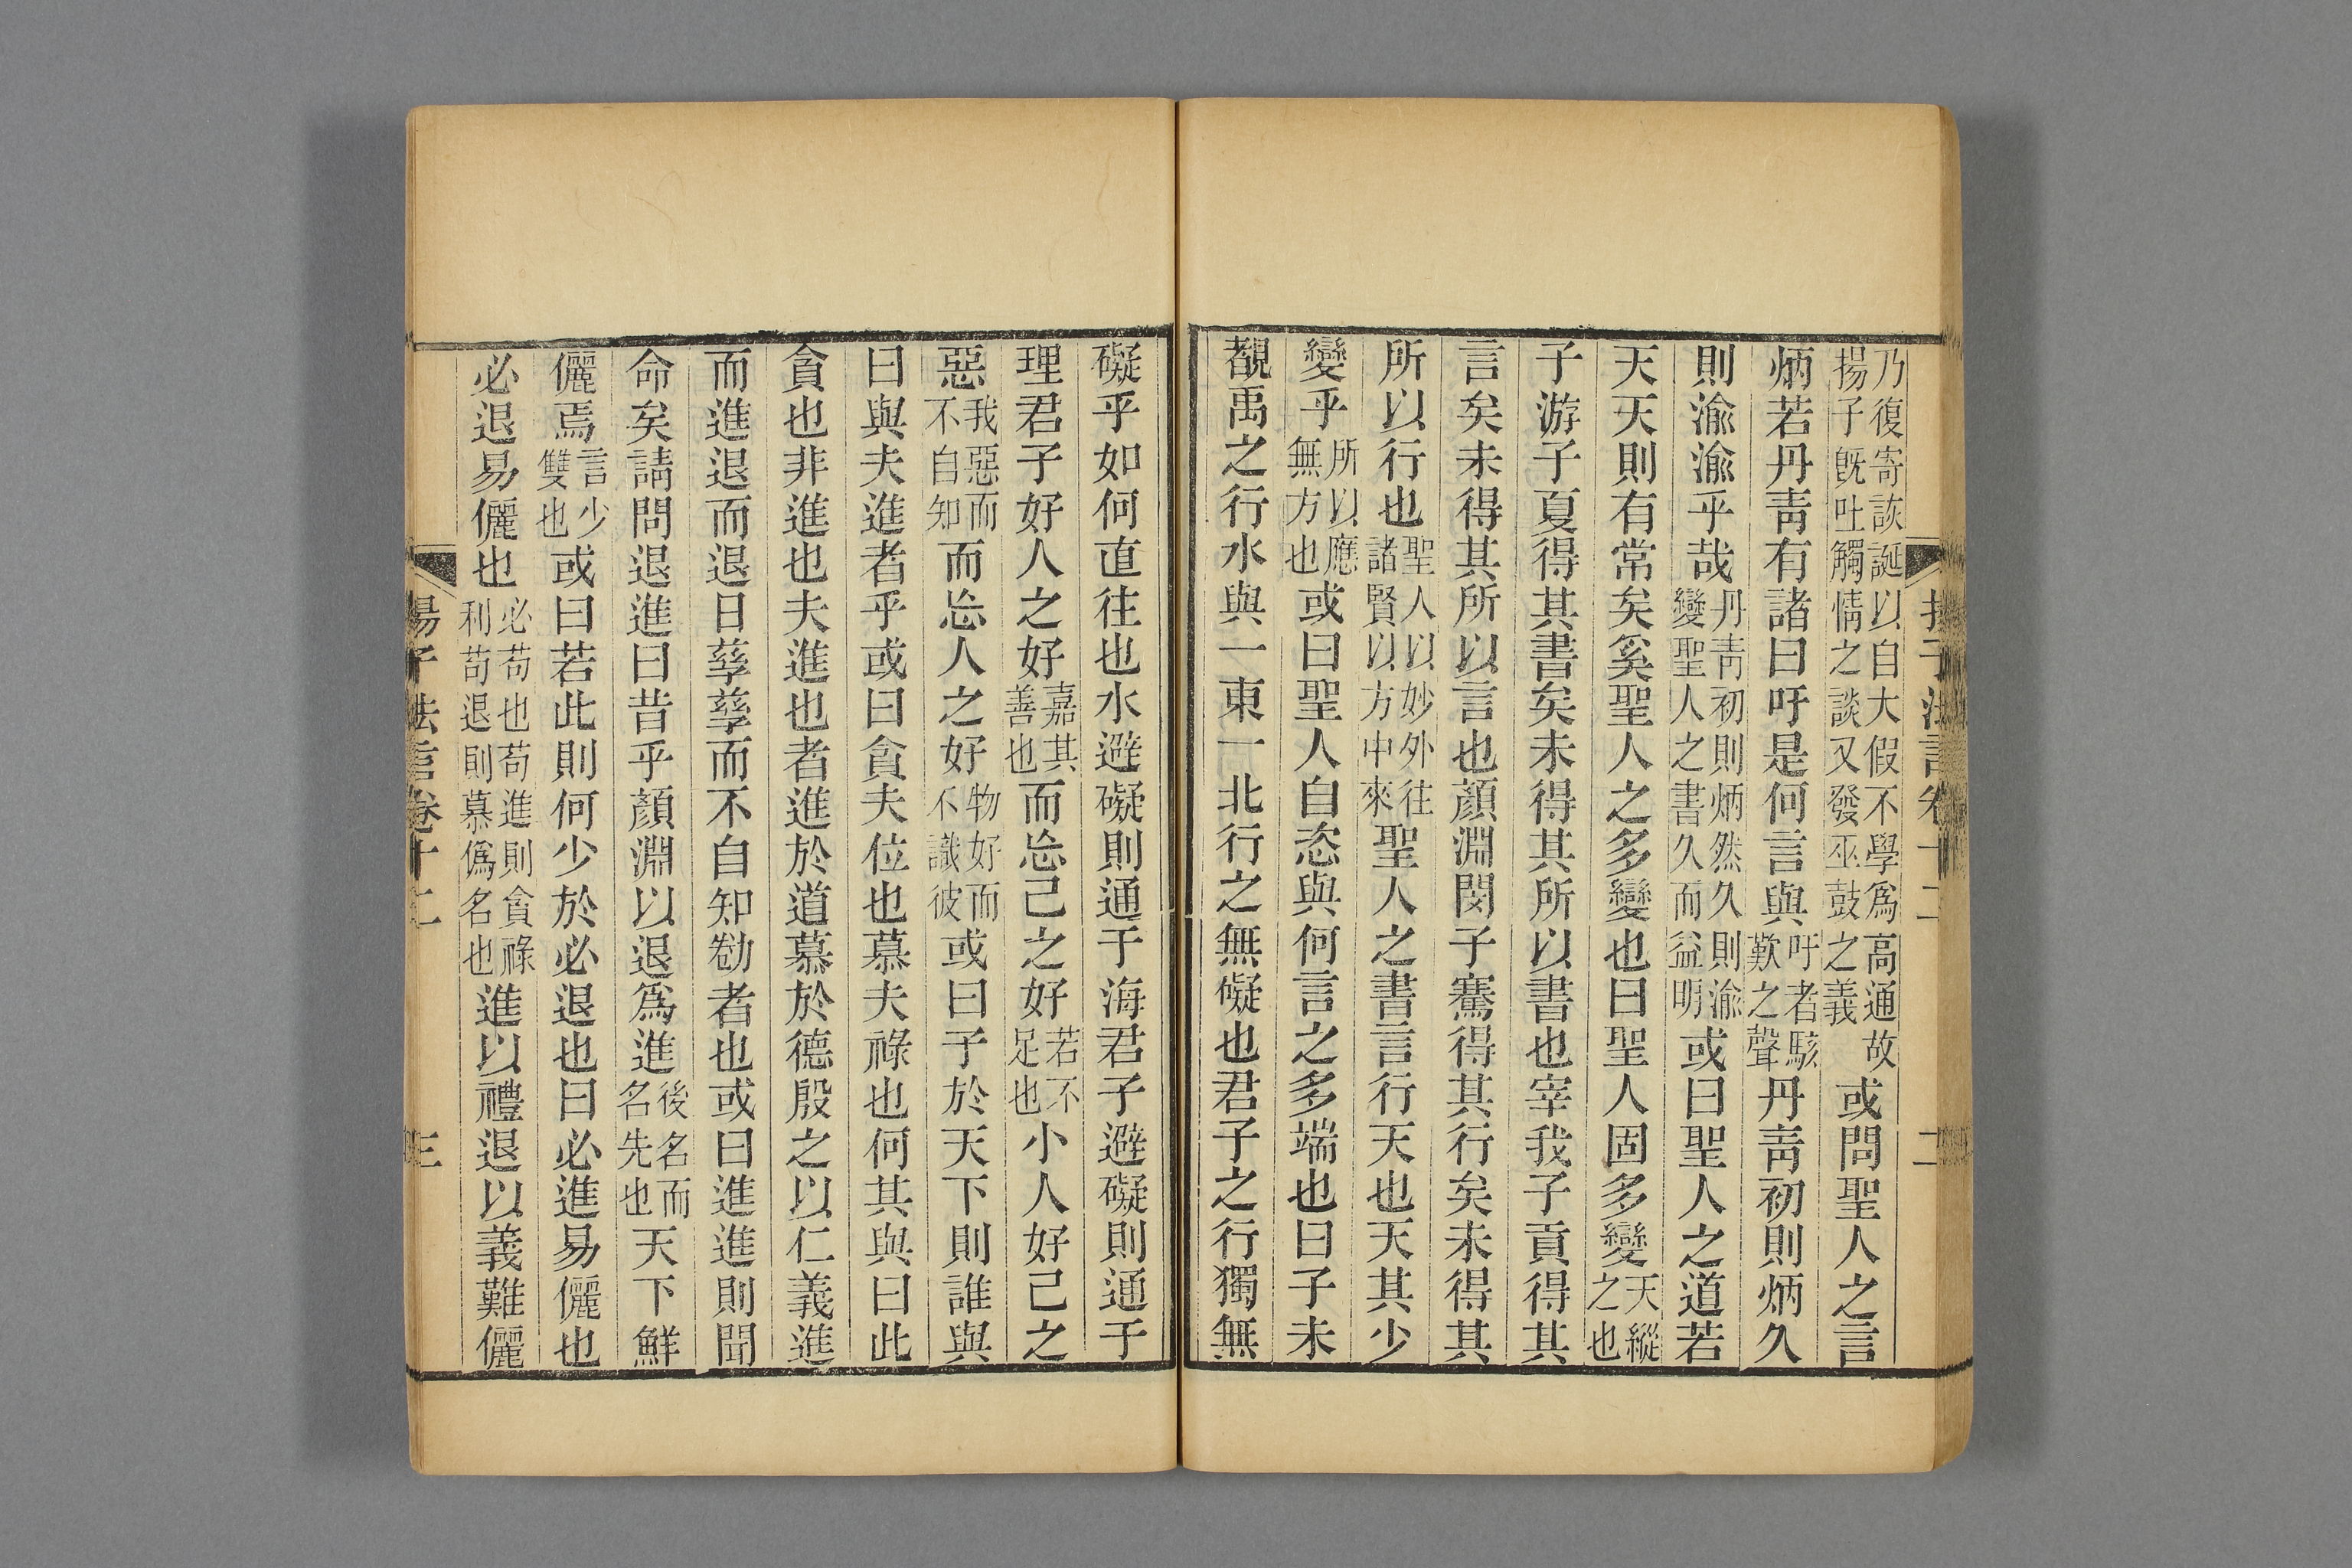 揚子法言卷十二　二
乃復寄詼誕以自大假不學爲高通故揚子旣吐觸情之談又發巫鼓之義或問聖人之言
炳若丹靑有諸曰吁是何言與吁者駭歎之聲丹靑初則炳久
則渝渝乎哉丹靑初則炳然久則渝變聖人之書久而益明或曰聖人之道若
天天則有常矣奚聖人之多變也曰聖人固多變天縱之也
子游子夏得其書矣未得其所以書也宰我子貢得其
言矣未得其所以言也顏淵閔子騫得其行矣未得其
所以行也聖人以妙外往諸賢以方中來聖人之書言行天也天其少
變乎所以應無方也或曰聖人自恣與何言之多端也曰子未
覩禹之行水與一東一北行之無礙也君子之行獨無
礙乎如何直往也水避礙則通于海君子避礙則通于
理君子好人之好嘉其善也而忘己之好若不足也小人好己之
惡我惡而不自知而忘人之好物好而不識彼或曰子於天下則誰與
曰與夫進者乎或曰貪夫位也慕夫祿也何其與曰此
貪也非進也夫進也者進於道慕於德殷之以仁義進
而進退而退日孳孳而不自知勌者也或曰進進則聞
命矣請問退進曰昔乎顏淵以退爲進後名而名先也天下鮮
儷焉言少雙也或曰若此則何少於必退也曰必進易儷也
必退易儷也必苟也苟進則貪祿利苟退則慕僞名也進以禮退以義難儷
揚子法言卷十二　三